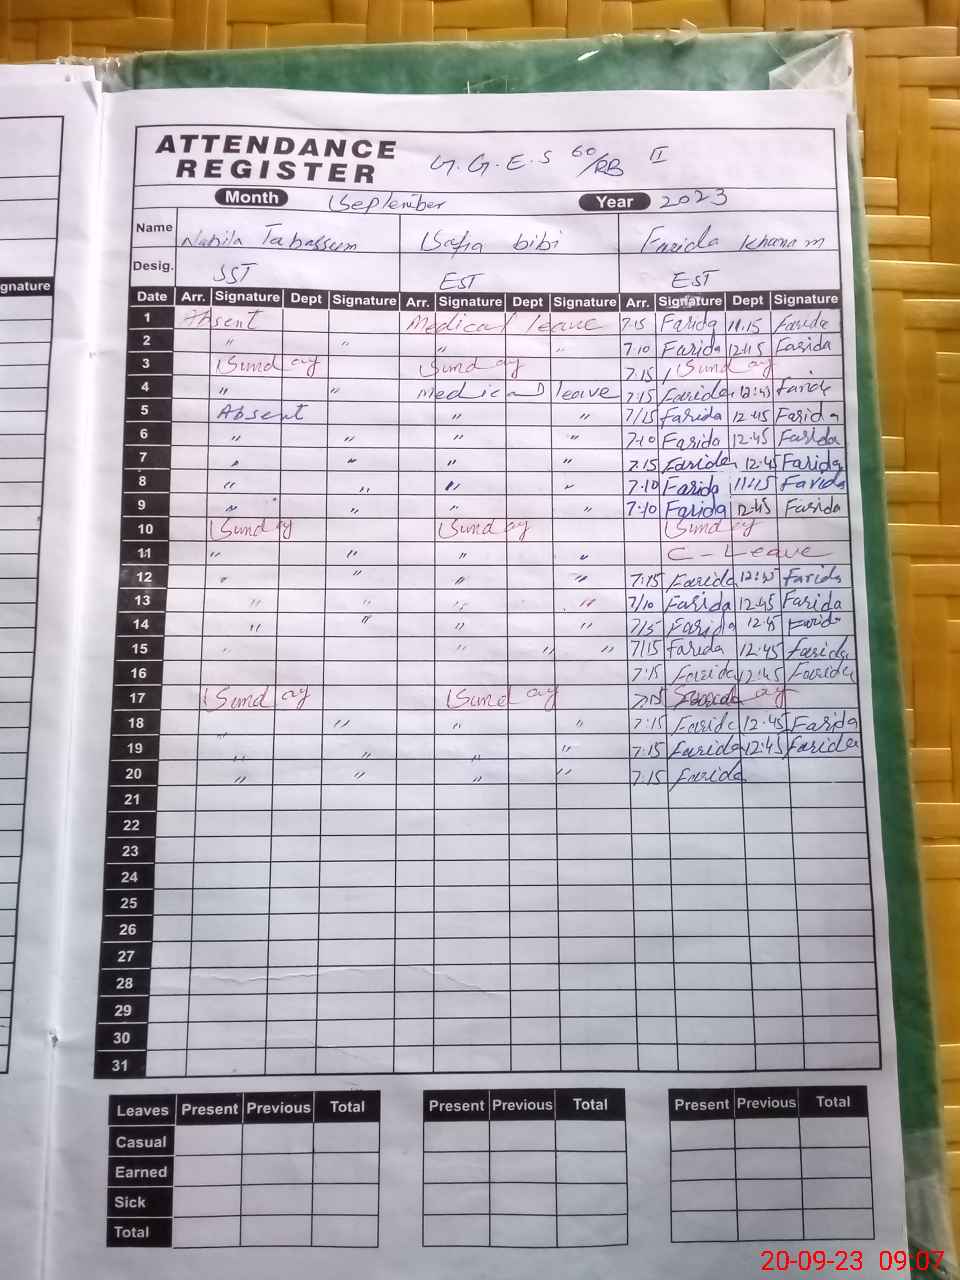 gnature
ATTENDANCE
REGISTER
G.G.E.S 60/RB II
Month September Year 2023
Name Nabila Tabassum Safia bibi Farida Khanam
Desig. SST EST EST
Date Arr. Signature Dept Signature Arr. Signature Dept Signature Arr. Signature Dept Signature
1 Absent Medical leave 7:15 Farida 11.15 Farida
2 " " " " 7:10 Farida 12:45 Farida
3 Sunday Sunday 7:15 Sunday
4 " " Medical leave 7:15 Farida 12:45 Farida
5 Absent " " 7/15 Farida 12:45 Farida
6 " " " " 7:10 Farida 12:45 Farida
7 " " " " 7:15 Farida 12:45 Farida
8 " " " " 7:10 Farida 11:15 Farida
9 " " " " 7:10 Farida 12:45 Farida
10 Sunday Sunday Sunday
11 " " " " C - Leave
12 " " " " 7:15 Farida Farida
13 " " " " 7/10 Farida 12:45 Farida
14 " " " " Farida 12:45 Farida
15 " " " " 7/15 Farida 12:45 Farida
16 7:15 Farida 12:45 Farida
17 Sunday Sunday 7:15 Sunday
18 " " " " 7:15 Farida 12:45 Farida
19 " " " " 7:15 Farida 12:45 Farida
20 " " " " 7:15 Farida
21
22
23
24
25
26
27
28
29
30
31
Leaves Present Previous Total Present Previous Total Present Previous Total
Casual
Earned
Sick
Total
20-09-23 09:07